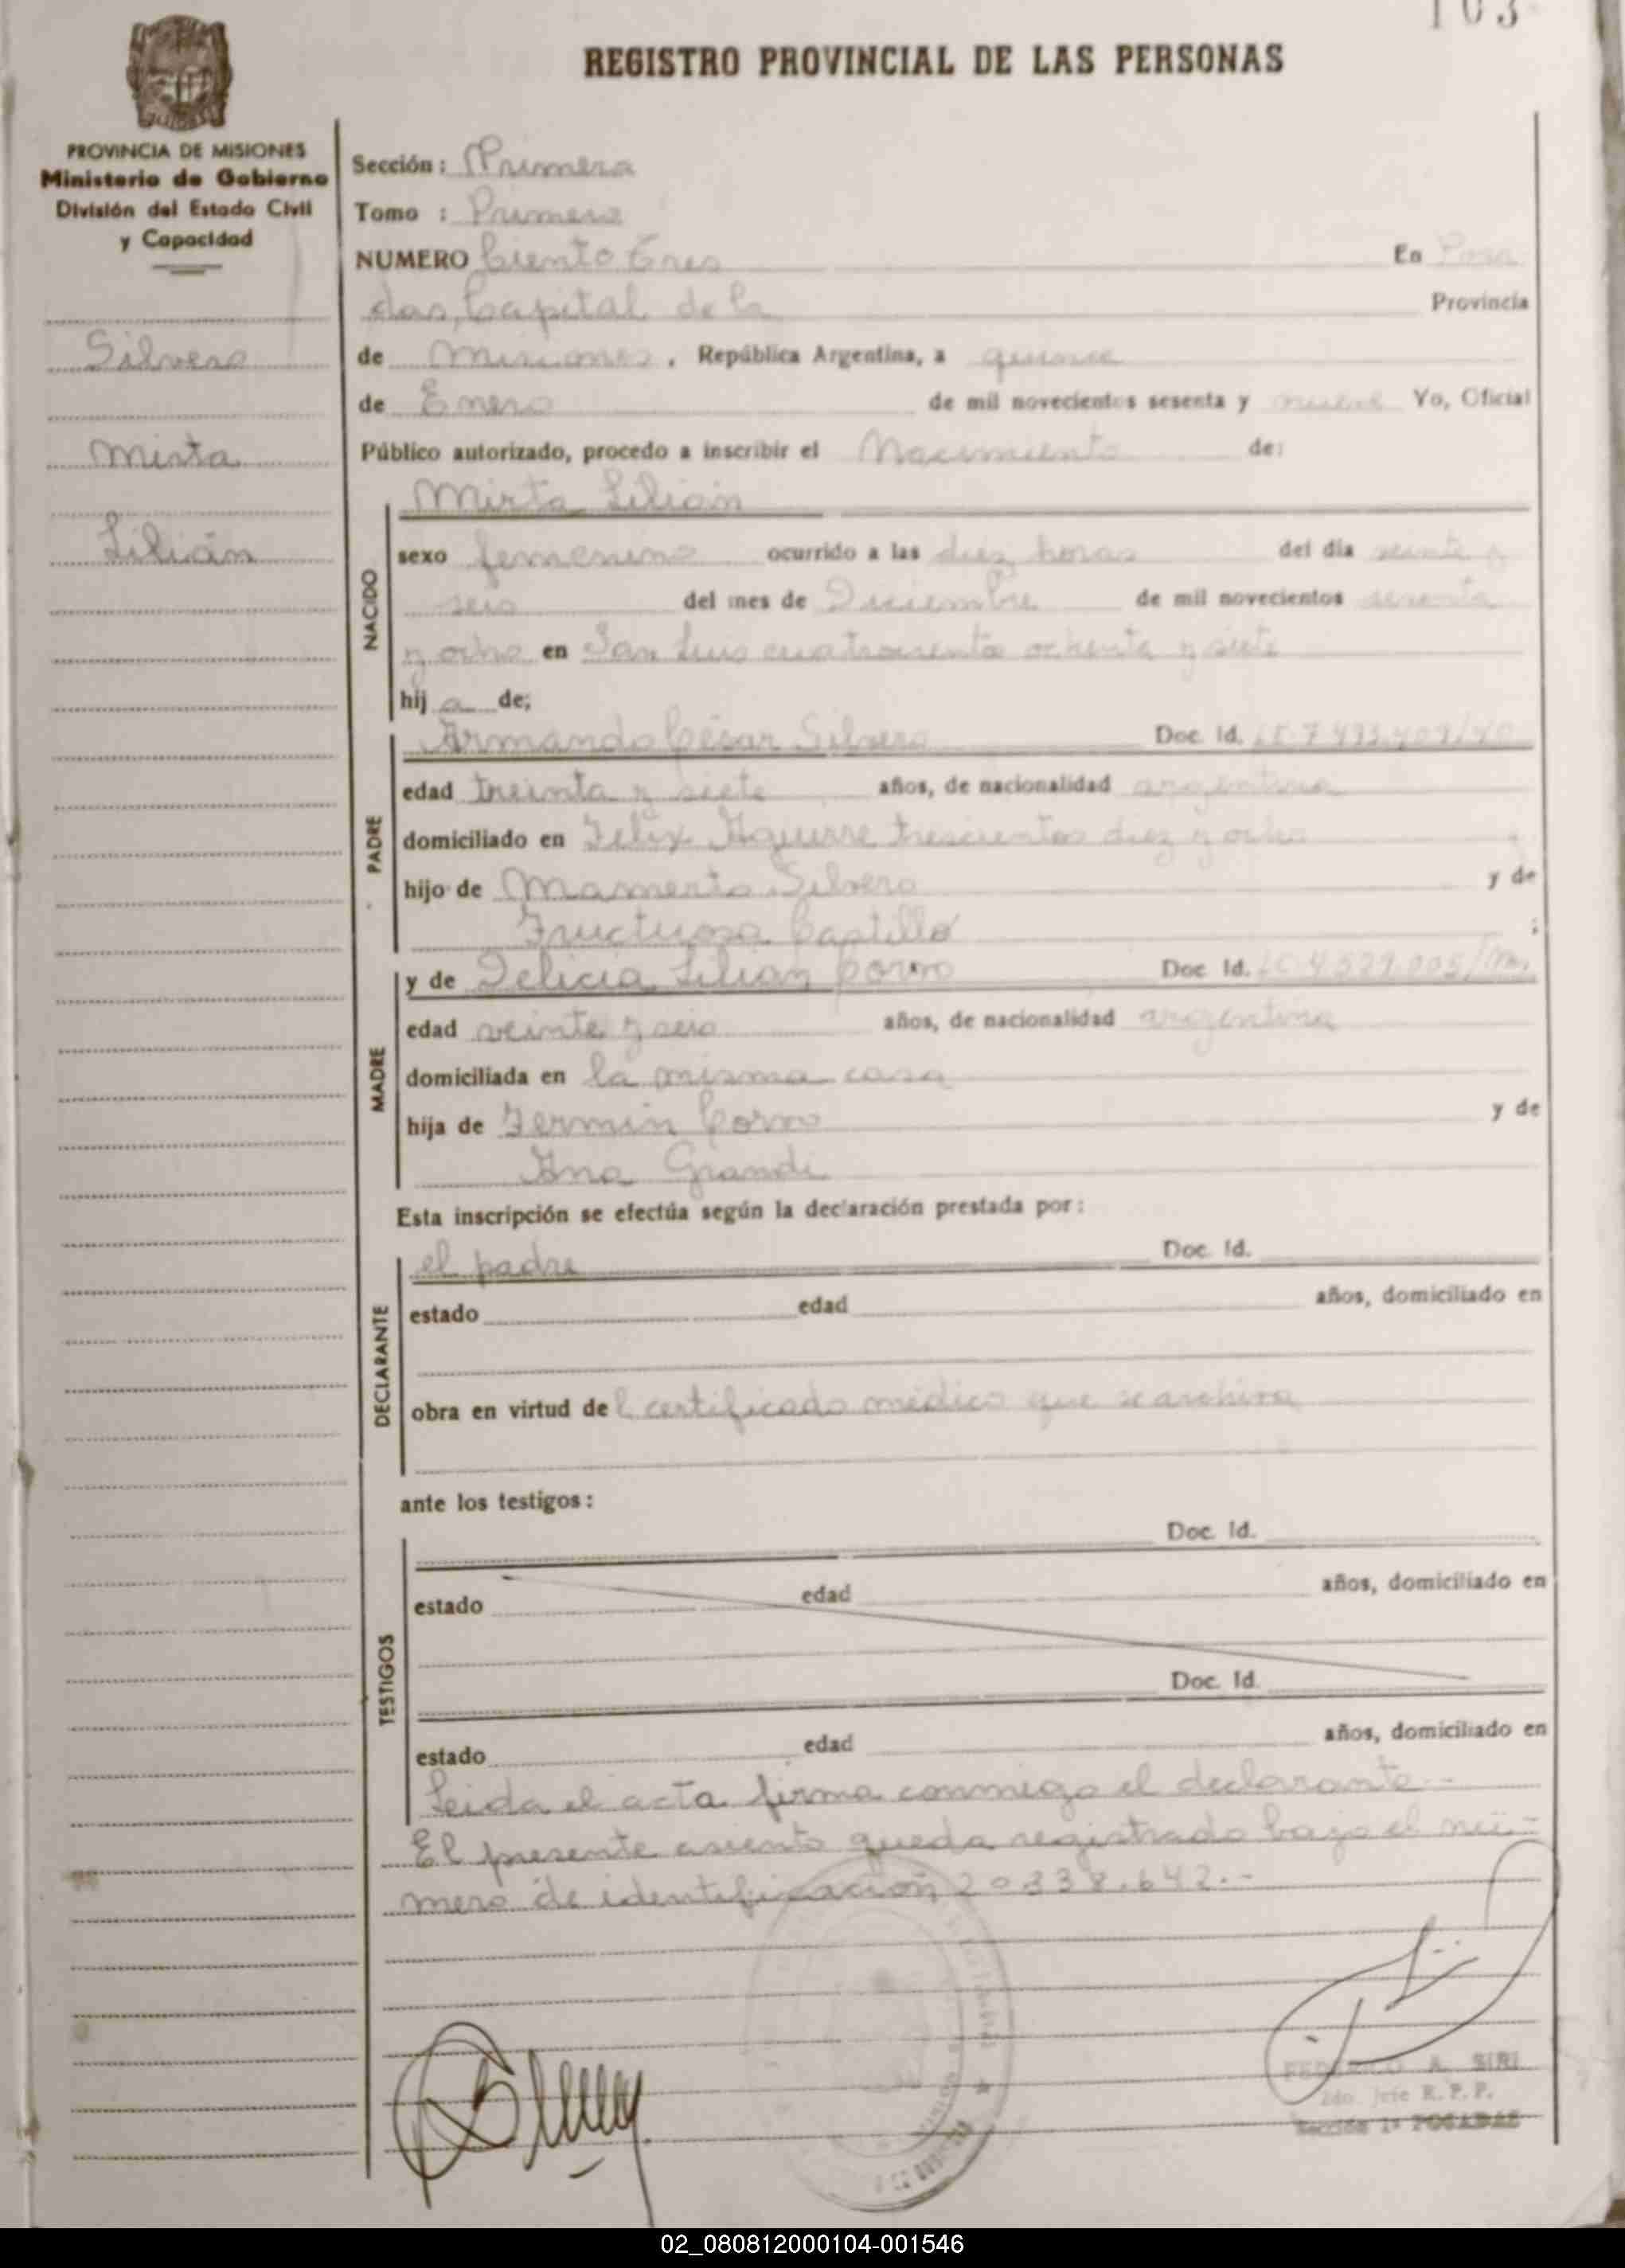 103
REGISTRO PROVINCIAL DE LAS PERSONAS
PROVINCIA DE MISIONES
Ministerio de Gobierno
División del Estado Civil
y Capacidad
Silvero
Mirta
Lilián
Sección: Primera
Tomo : Primero
NUMERO Ciento tres En Posa
das, Capital de la Provincia
de Misiones, República Argentina, a quince
de Enero de mil novecientos sesenta y nueve Yo, Oficial
Público autorizado, procedo a inscribir el Nacimiento de:
NACIDO
Mirta Lilián
sexo femenino ocurrido a las diez horas del día veinte y
seis del mes de Diciembre de mil novecientos sesenta
y ocho en San Luis cuatrocientos ochenta y siete
hij a de;
PADRE
Armando César Silvero Doc. Id.
edad treinta y siete años, de nacionalidad argentina
domiciliado en Felix Aguirre trescientos diez y ocho
hijo de Mamerto Silvero y de
Fructuosa Castillo ;
MADRE
y de Delicia Lilian Corro Doc. Id.
edad veinte y seis años, de nacionalidad argentina
domiciliada en la misma casa
hija de Fermín Corro y de
Ana Grande
Esta inscripción se efectúa según la declaración prestada por:
DECLARANTE
el padre Doc. Id.
estado edad años, domiciliado en
obra en virtud del certificado médico que se archiva
ante los testigos:
TESTIGOS
Doc. Id.
estado edad años, domiciliado en
Doc. Id.
estado edad años, domiciliado en
Leida el acta firma conmigo el declarante.-
El presente asiento queda registrado bajo el nú-
mero de identificación 20.338.642.-
FEDERICO A. SIRI
2do. Jefe R.P.P.
Sección 1ª POSADAS
02_080812000104-001546